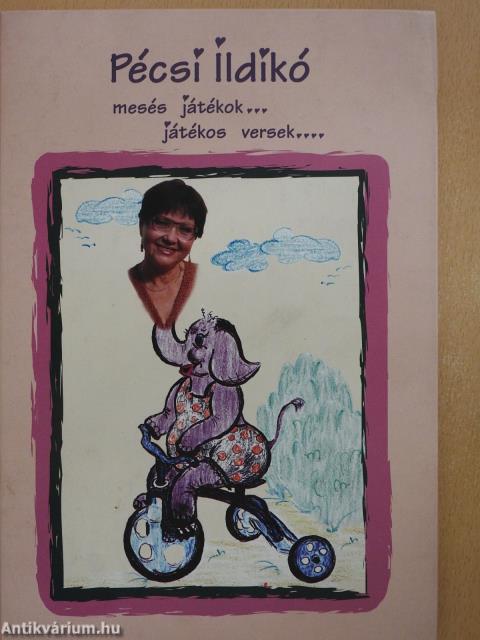 Pécsi Ildikó
mesés játékok...
játékos versek....
Antikvárium.hu